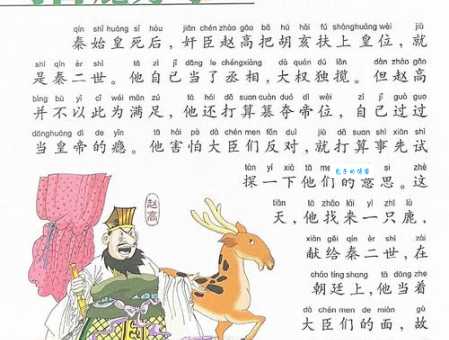 qín shǐ huáng sǐ hòu, jiān chén zhào gāo bǎ hú hài fú shànghuáng wèi, jiù
秦始皇死后，奸臣赵高把胡亥扶上皇位，就
shì qín èr shì tā zì jǐ dāng le chéngxiàng dà quán dú lǎn dàn zhào gāo
是秦二世。他自己当了丞相，大权独揽。但赵高
bìng bù yǐ cǐ wéi mǎn zú tā hái dǎ suan cuàn duó dì wèi zì jǐ guò guo
并不以此为满足，他还打算篡夺帝位，自己过过
dānghuáng dì de yǐn tā hài pà dà chén men fǎn duì jiù dǎ suan shì xiān shì
当皇帝的瘾。他害怕大臣们反对，就打算事先试
tàn yí xià tā me si zhè
探一下他们的意思。这
包子的博客
tiān tā zhǎo lái yì zhī lù
天，他找来一只鹿，
赵高
xiàn gěi qín èr shì zài
献给秦二世，在
cháo tíng shang tā dāng zhe
朝廷上，他当着
dà chén men de miàn gù
大臣们的面，故